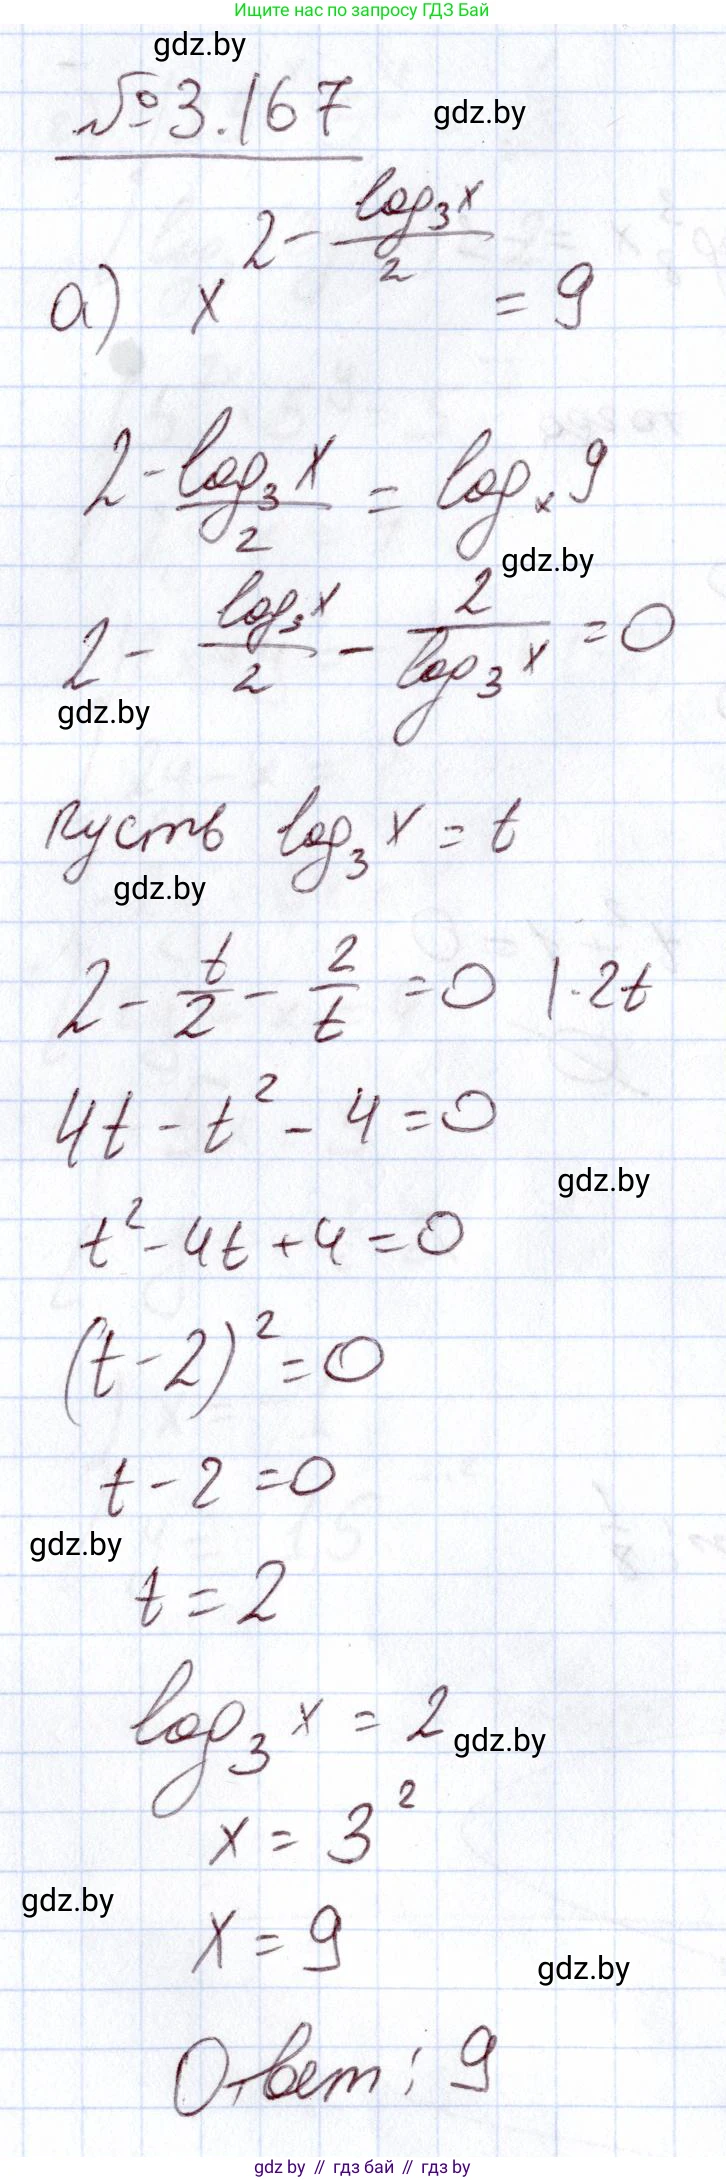 Ищите нас по запросу ГДЗ Бай
gdz.by
№ 3.167
gdz.by
а) x^(2 - log₃x/2) = 9
2 - log₃x/2 = logₓ9
gdz.by
2 - log₃x/2 - 2/log₃x = 0
gdz.by
пусть log₃x = t
gdz.by
2 - t/2 - 2/t = 0 |·2t
4t - t² - 4 = 0
gdz.by
t² - 4t + 4 = 0
(t - 2)² = 0
t - 2 = 0
gdz.by
t = 2
log₃x = 2
gdz.by
x = 3²
gdz.by
x = 9
gdz.by
Ответ: 9
gdz.by // гдз бай // гдз by